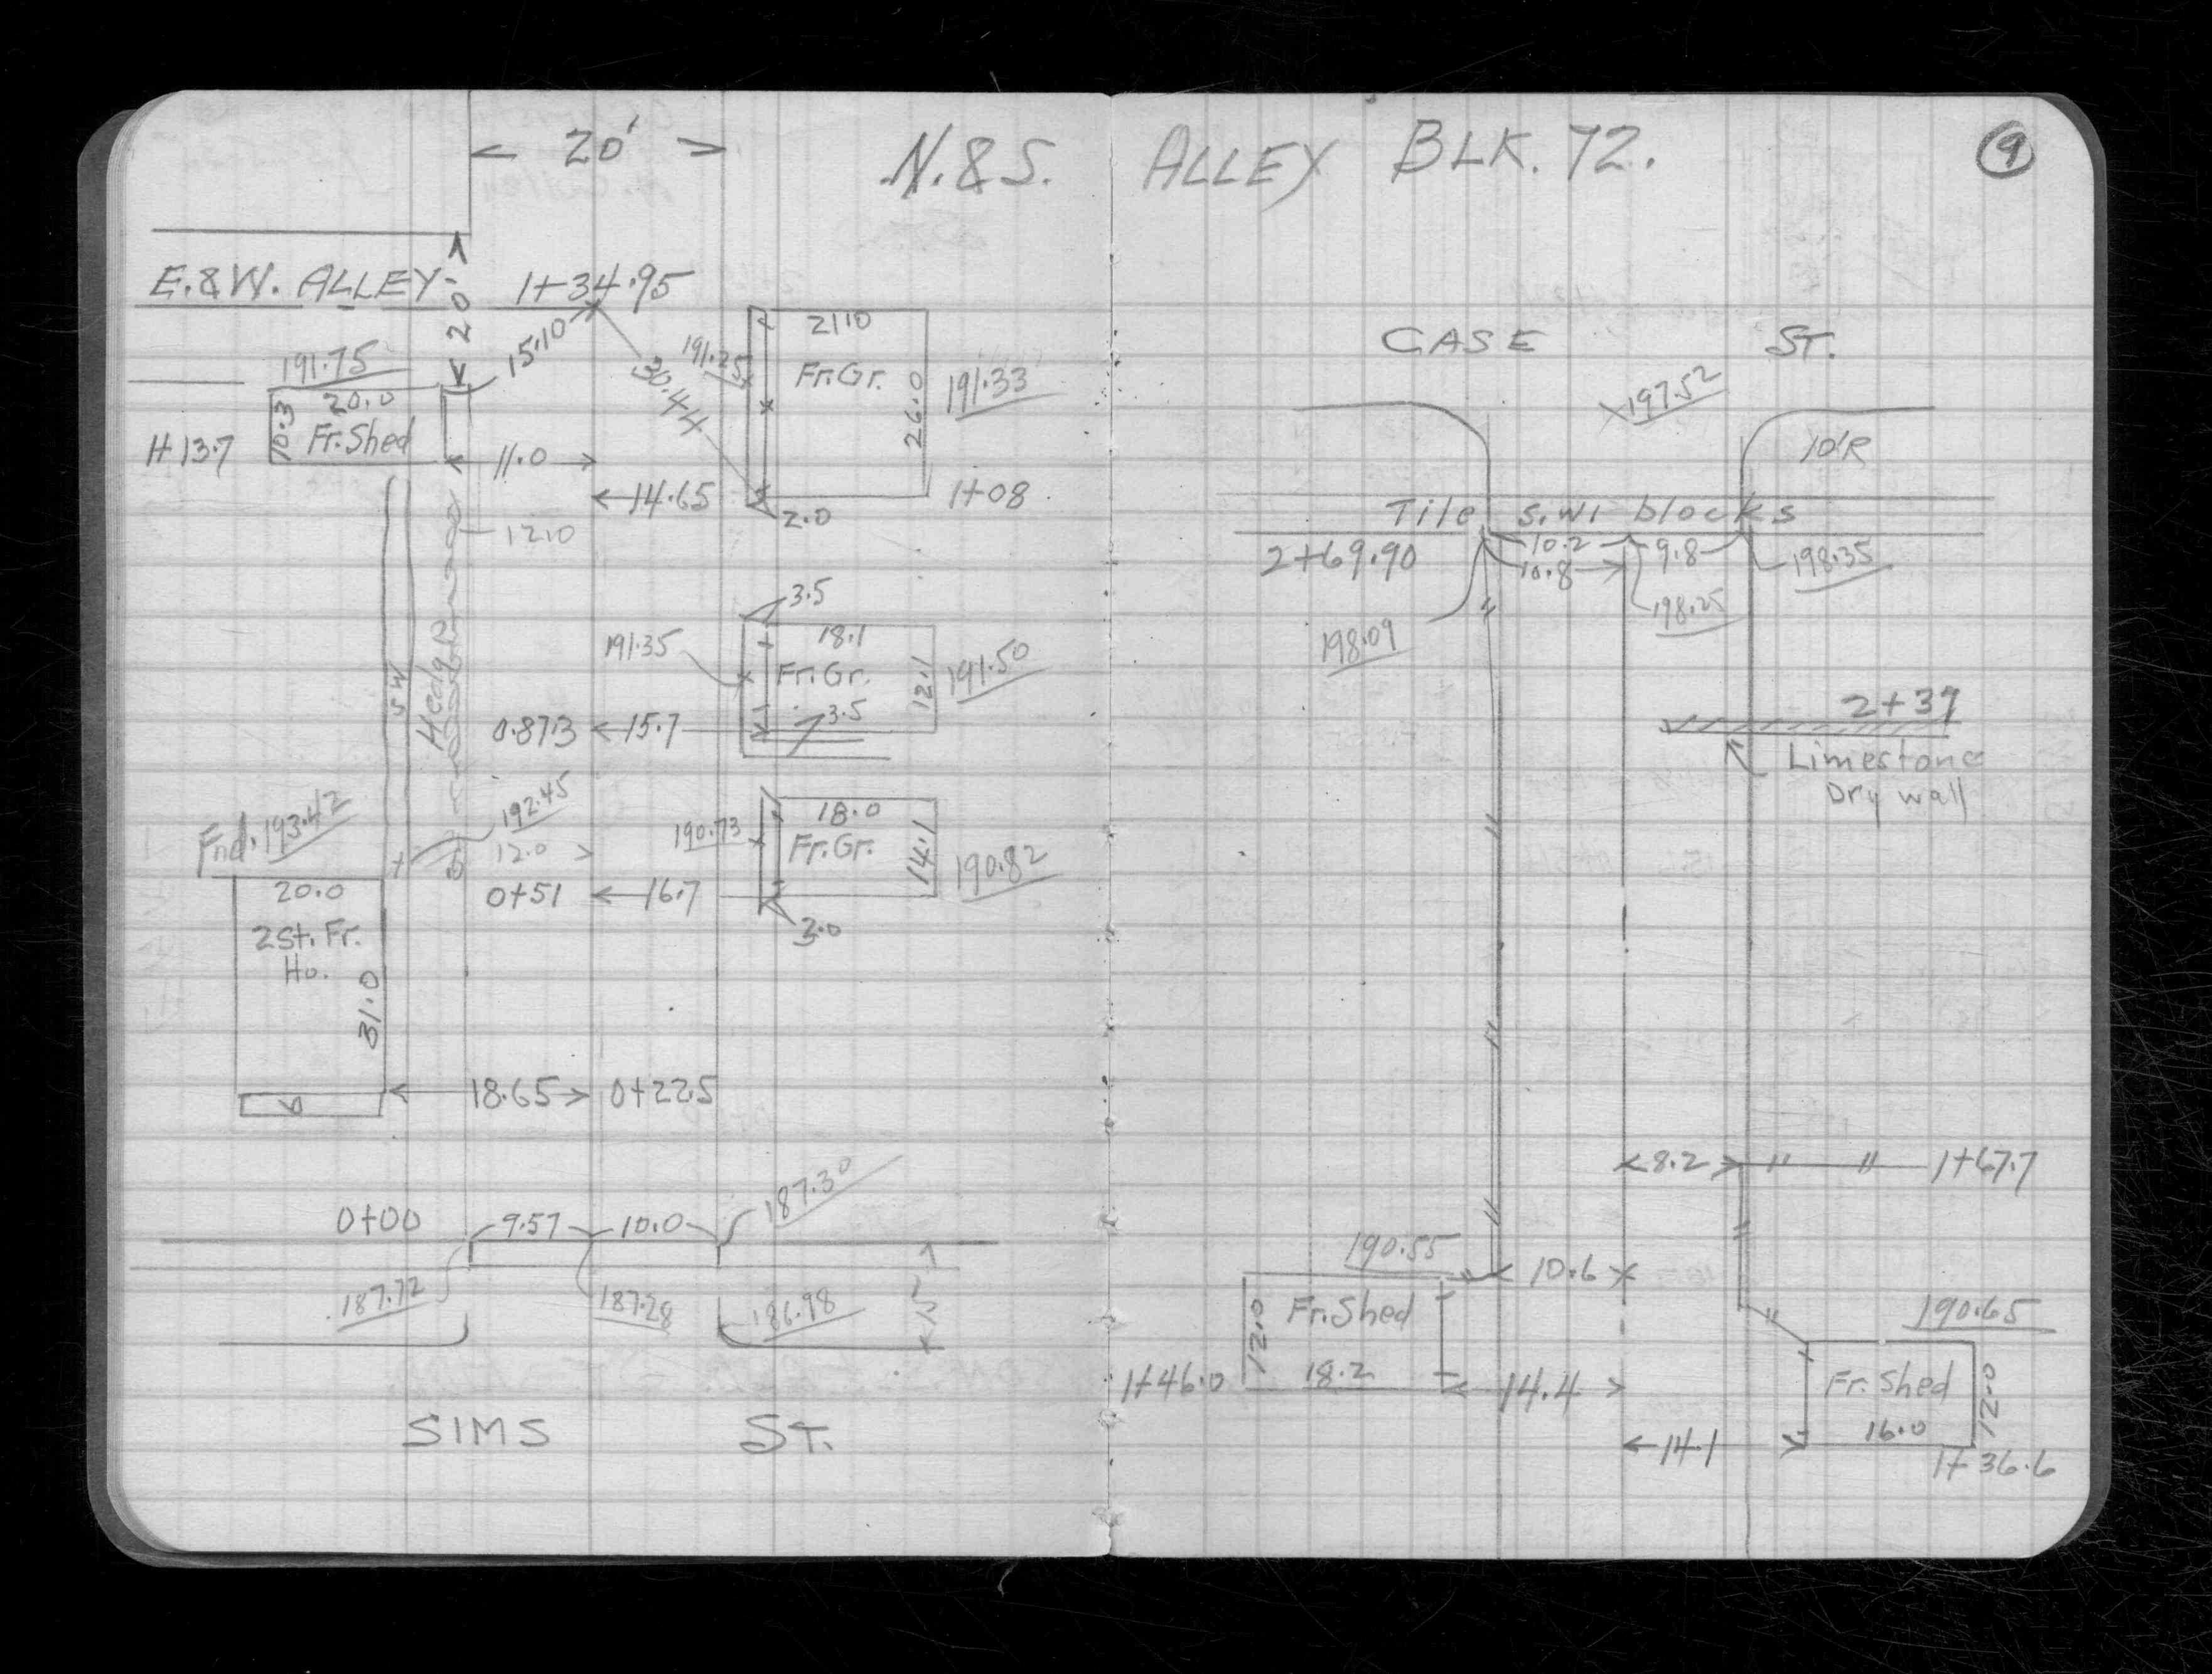 20'
N.&S. ALLEY BLK. 72.
9
E.&W. ALLEY
20
1+34.95
15.10
30.44
191.75
20.0
10.3
Fr. Shed
1+13.7
11.0
14.65
12.0
191.25
21.0
Fr. Gr.
26.0
191.33
1+08
2.0
3.5
191.35
18.1
Fr. Gr.
12.1
191.50
3.5
0.873
15.7
S W
Hedge
192.45
12.0
190.73
18.0
Fr. Gr.
14.1
190.82
0+51
16.7
3.0
Fnd. 193.42
20.0
2 St. Fr.
Ho.
31.0
18.65
0+22.5
0+00
9.57
10.0
187.30
187.72
187.28
186.98
SIMS ST.
CASE ST.
197.52
10'R
Tile s.w. blocks
2+69.90
10.2
9.8
10.8
198.35
198.25
198.09
2+39
Limestone
Dry wall
8.2
1+67.7
190.55
10.6
12.0
Fr. Shed
18.2
1+46.0
14.4
190.65
Fr. Shed
16.0
12.0
14.1
1+36.6